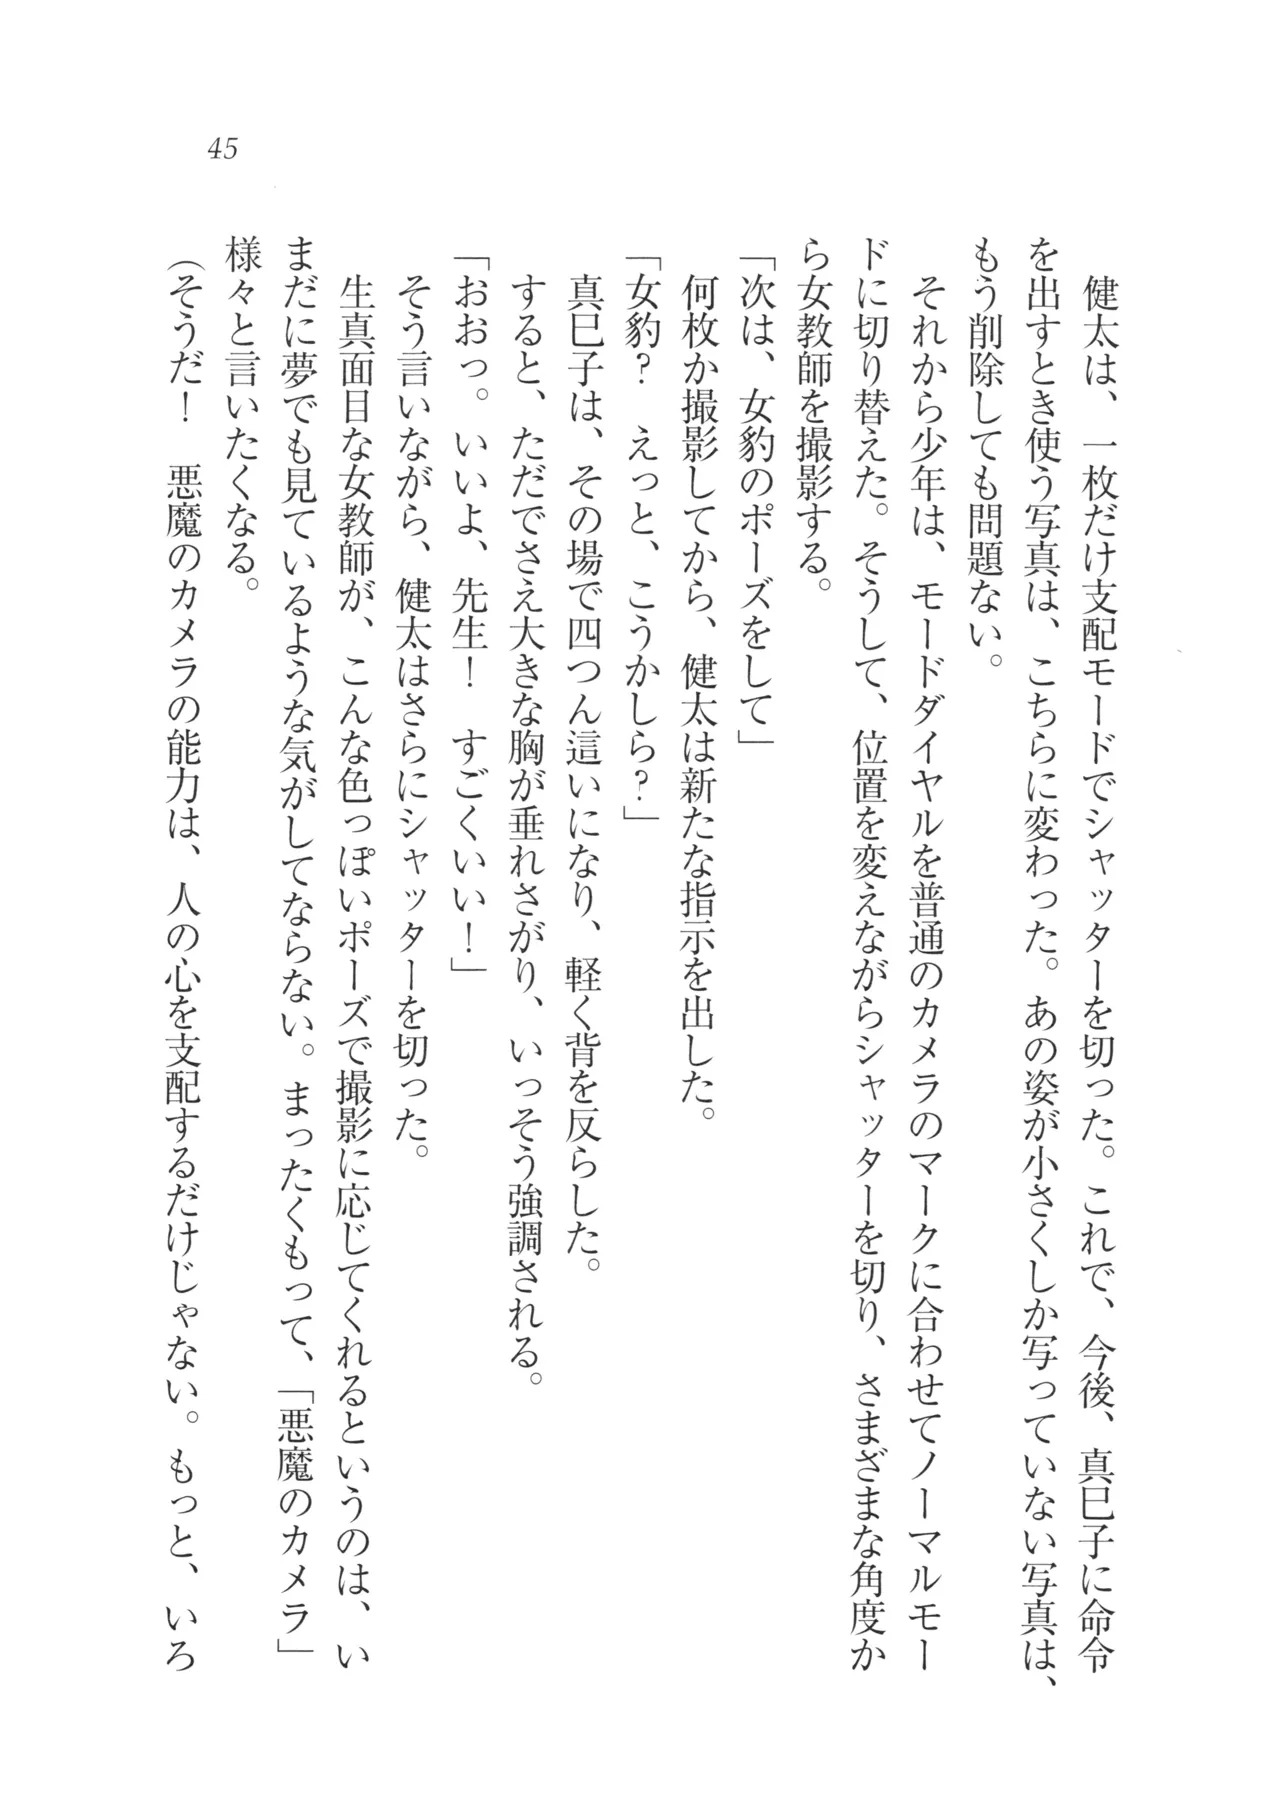 45
健太は、一枚だけ支配モードでシャッターを切った。これで、今後、真巳子に命令
を出すとき使う写真は、こちらに変わった。あの姿が小さくしか写っていない写真は、
もう削除しても問題ない。
それから少年は、モードダイヤルを普通のカメラのマークに合わせてノーマルモー
ドに切り替えた。そうして、位置を変えながらシャッターを切り、さまざまな角度か
ら女教師を撮影する。
「次は、女豹のポーズをして」
何枚か撮影してから、健太は新たな指示を出した。
「女豹？　えっと、こうかしら？」
真巳子は、その場で四つん這いになり、軽く背を反らした。
すると、ただでさえ大きな胸が垂れさがり、いっそう強調される。
「おおっ。いいよ、先生！　すごくいい！」
そう言いながら、健太はさらにシャッターを切った。
生真面目な女教師が、こんな色っぽいポーズで撮影に応じてくれるというのは、い
まだに夢でも見ているような気がしてならない。まったくもって、「悪魔のカメラ」
様々と言いたくなる。
（そうだ！　悪魔のカメラの能力は、人の心を支配するだけじゃない。もっと、いろ